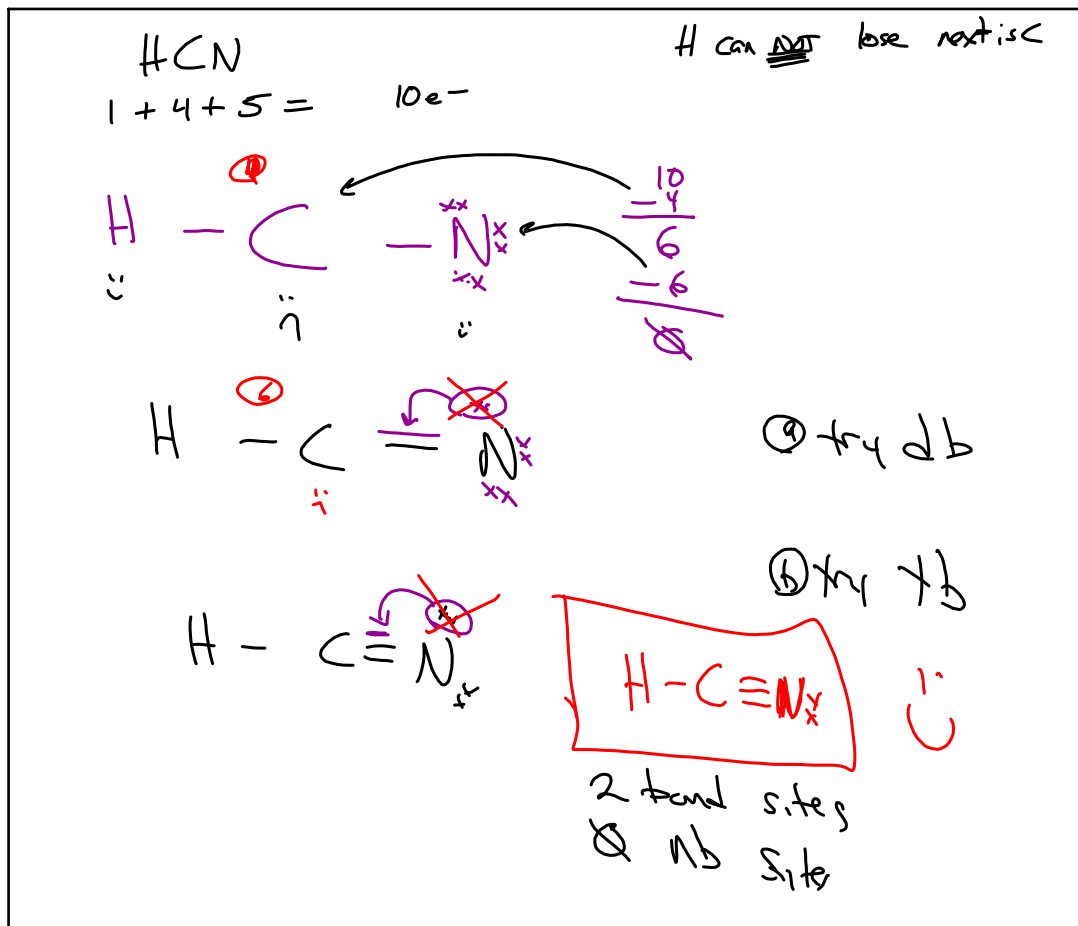 HCN
H can NOT lose next is C
1 + 4 + 5 = 10 e-
4
H - C - N xx xx xx
10
- 4
6
- 6
0
6
H - C = N xx xx
a try db
b try tb
H - C ≡ N xx
H - C ≡ N xx
2 bond sites
0 nb sites